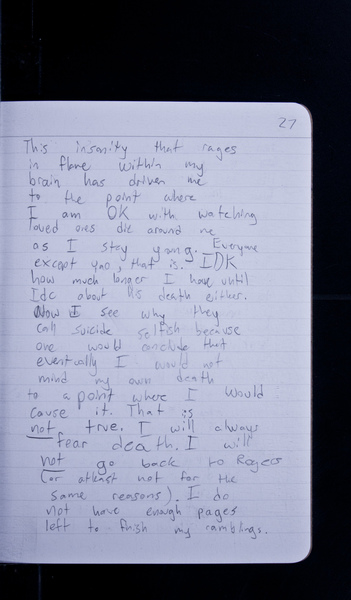 27
This insanity that rages
in flame within my
brain has driven me
to the point where
I am OK with watching
loved ones die around me
as I stay young. Everyone
except you, that is. IDK
how much longer I have until
Idc about his death either.
Now I see why they
call suicide selfish because
one would conclude that
eventually I would not
mind my own death
to a point where I would
cause it. That is
not true. I will always
fear death. I will
not go back to Rogers
(or atleast not for the
same reasons). I do
not have enough pages
left to finish my ramblings.